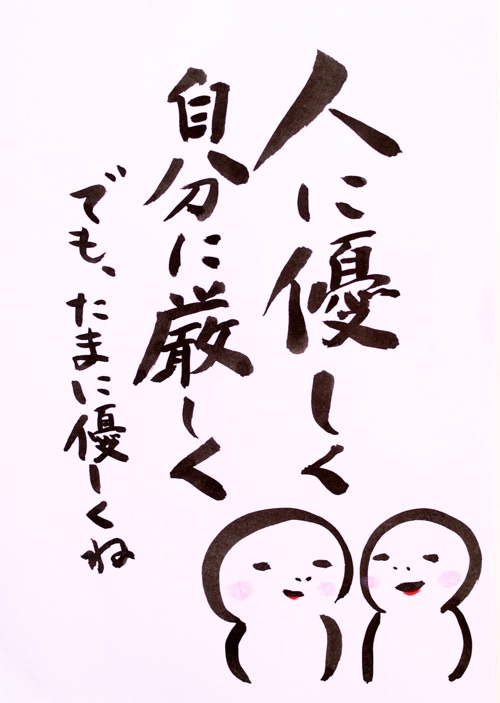 人に優しく
自分に厳しく
でも、たまに優しくね